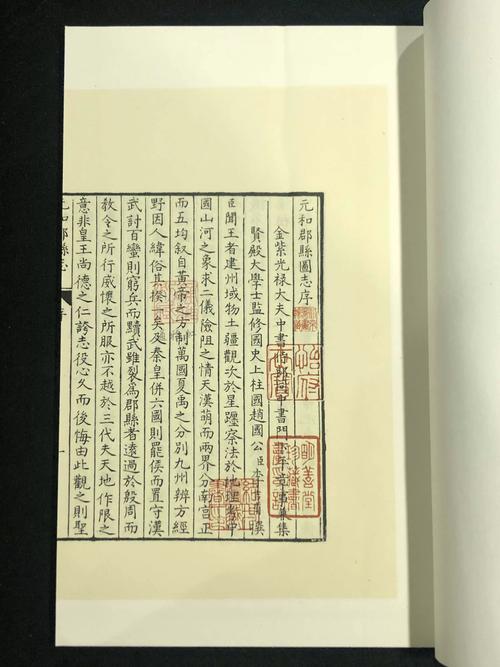 元和郡縣圖志序
金紫光祿大夫中書侍郎同中書門下平章事兼集
賢殿大學士監修國史上柱國趙國公臣李吉甫撰
臣聞王者建州域物土疆觀次於星躔察法於地理考中
國山河之象求二儀險阻之情天漢萌而兩界分南宮正
而五均叙自黃帝之方制萬國夏禹之分別九州辨方經
野因人緯俗其揆一矣及秦皇併六國則罷侯而置守漢
武討百蠻則窮兵而黷武雖裂為郡縣者遠過於殷周而
教令之所行威懷之所服亦不越於三代夫天地作限之
意非皇王尚德之仁誇志役心久而後悔由此觀之則聖
元和郡縣志 序 一